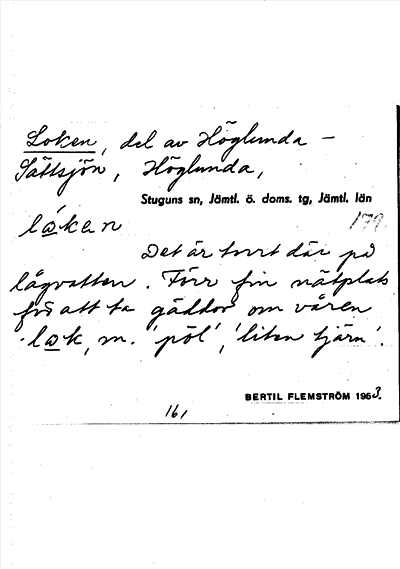 Loken, del av Höglunda –
Sättsjön, Höglunda,
Stuguns sn, Jämtl. ö. doms. tg, Jämtl. län
179
lɷ́kɐn
Det är torrt där på
lågvatten. Förr fin nätplats
för att ta gäddor om våren
lɷk, m. 'pöl', 'liten tjärn'.
BERTIL FLEMSTRÖM 1953.
161